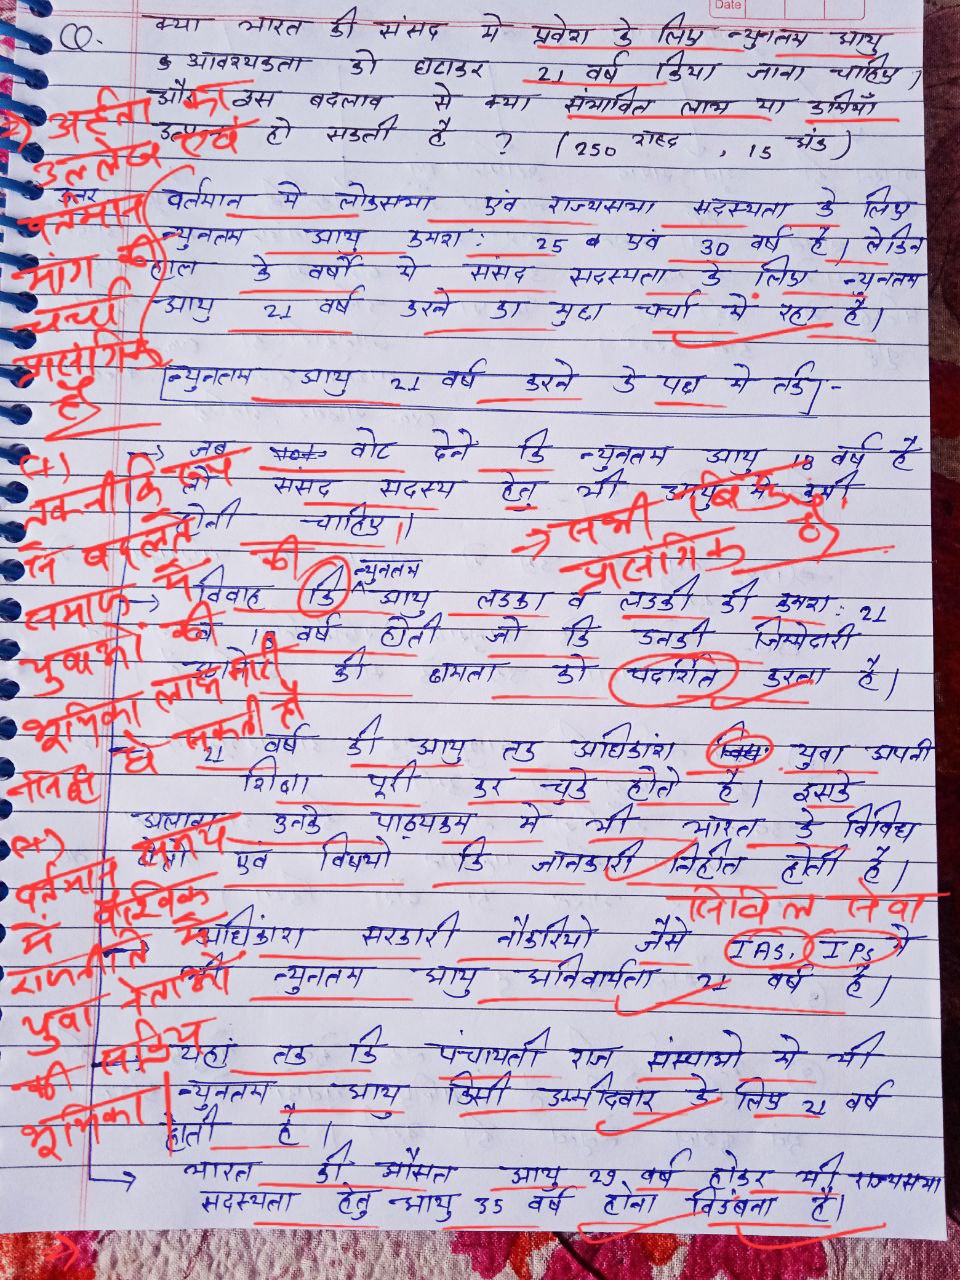 Date
Q. क्या भारत की संसद में प्रवेश के लिए न्युनतम आयु
आवश्यकता को घटाकर 21 वर्ष किया जाना चाहिए,
और इस बदलाव से क्या संभावित लाभ या कमियाँ
उत्पन्न हो सकती है ? (250 शब्द, 15 अंक)
अर्हता का
उल्लेख एवं
वर्तमान
मांग की
चर्चा
प्रासंगिक
है
उत्तर
वर्तमान में लोकसभा एवं राज्यसभा सदस्यता के लिए
न्युनतम आयु क्रमश: 25 व एवं 30 वर्ष है। लेकिन
हाल के वर्षों में संसद सदस्यता के लिए न्युनतम
आयु 21 वर्ष करने का मुद्दा चर्चा में रहा है।
न्युनतम आयु 21 वर्ष करने के पक्ष में तर्क -
→ जब वोट देने कि न्युनतम आयु 18 वर्ष है
तो संसद सदस्य हेतु भी आयु में कमी
होनी चाहिए।
→ सभी बिन्दु
प्रासंगिक है
(+)
तकनीकि रूप
से बदलते
समाज में
युवाओं की
भूमिका लाभ
→ विवाह कि न्युनतम आयु लडका व लडकी की क्रमश: 21
व 18 वर्ष होती जो कि उनकी जिम्मेदारी
की क्षमता को प्रदर्शित करता है।
की
→ 21 वर्ष की आयु तक अधिकांश युवा अपनी
शिक्षा पूरी कर चुके होते है। इसके
अलावा उनके पाठ्यक्रम में भी भारत के विविध
क्षेत्रों एवं विषयों कि जानकारी निहीत होती है।
सिविल सेवा
→ अधिकांश सरकारी नौकरियों जैसे IAS, IPS में
न्युनतम आयु अनिवार्यता 21 वर्ष है।
(+)
वर्तमान समय
में वैश्विक
राजनीति में
युवा नेताओं
की सक्रिय
भूमिका
→ यहां तक कि पंचायती राज संस्थाओं में भी
न्युनतम आयु किसी उम्मीदवार के लिए 21 वर्ष
होती है।
→ भारत की औसत आयु 29 वर्ष होकर भी राज्यसभा
सदस्यता हेतु आयु 35 वर्ष होना विडंबना है।